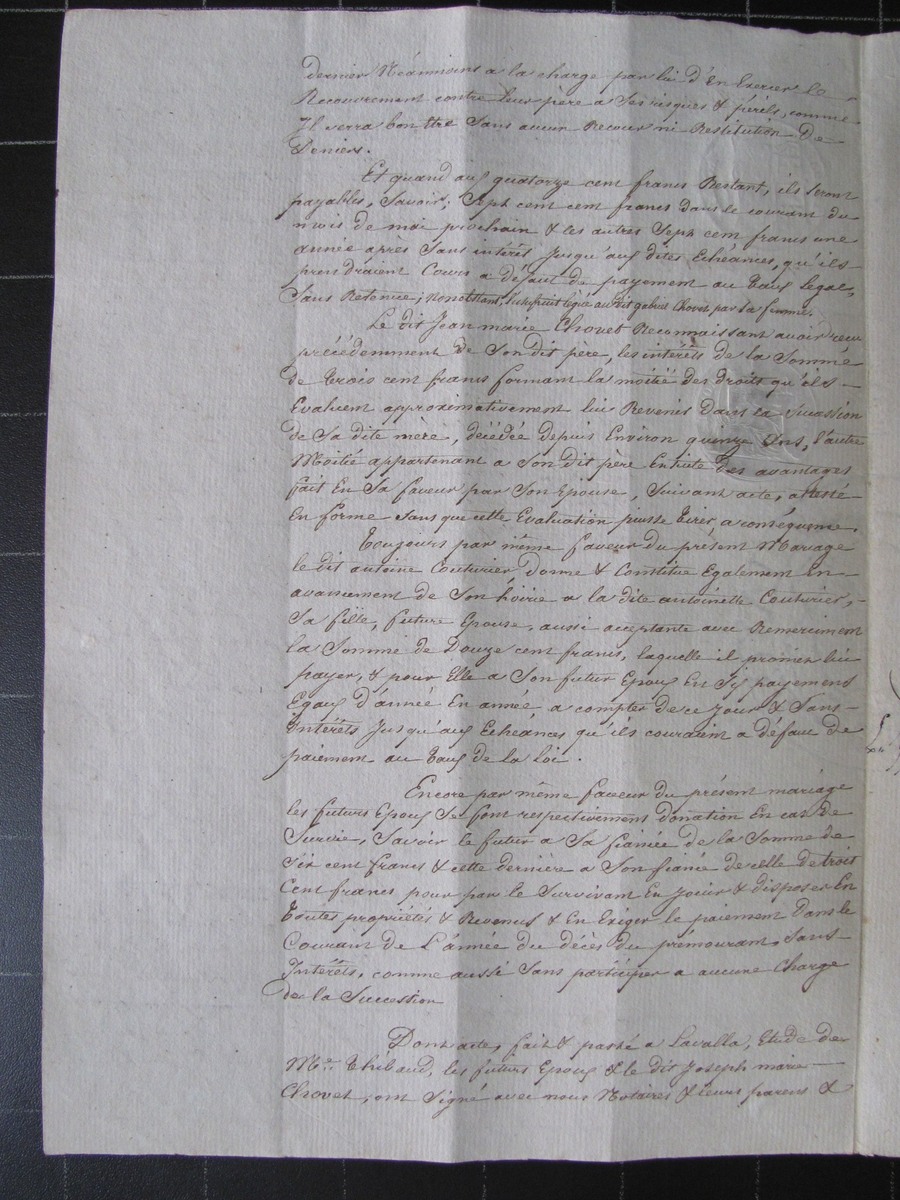 dernier Néanmoins a la charge par lui d'En Exercer le
Recouvrement contre leur père a Ses risques & périls, comme
Il verra bon être Sans aucun Recour ni Restitution De
Deniers.
Et quand aux quatorze cent francs Restant, ils Seront
payables, Savoir; Sept cent cent francs Dans le courant du
mois de mai prochain & les autres Sept cent francs une
année après Sans intérêt Jusqu'aux dites Echéances, qu'ils
prendraient Cours a défaut de payement au Taux Légal,
Sans Retenue; Nonobstant, l'usufruit légué audit gabriel Chovet par Sa femme.
Le dit Jean marie Chovet Reconnaissant avoir reçu
précédemment de Son dit père, les intérêts de la Somme
de Trois cent francs formant la moitié des droits qu'ils
Evaluent approximativement lui Revenir Dans la Succession
de Sa dite mère, décédée depuis Environ quinze Ans, l'autre
Moitié appartenant a Son dit père Ensuite des avantages
fait En Sa faveur par Son Epouse, Suivant acte, attesté
En forme Sans que cette Evaluation puisse Tirer a conséquence.
Toujours par même faveur du présent Mariage
le dit antoine Couturier donne & Constitue Egalement En
avancement de Son hoirie a la dite antoinette Couturier,
Sa fille, future Epouse, aussi acceptante avec Remerciment
la Somme de Douze cent francs, laquelle il promet lui
payer, & pour Elle a Son futur Epoux En Six payemens
Egaux d'année En année a compter de ce Jour & Sans
Intérêts Jusqu'aux Echéances qu'ils couraient a défaut de
paiement au Taux de la loi.
Encore par même faveur du présent mariage
les futurs Epoux Se font respectivement donation En cas de
Survie, Savoir le futur a Sa fiancée de la Somme de
Six cent francs & cette dernière a Son fiancé de celle de trois
Cent francs pour par le Survivant En Jouir & disposer En
Toutes propriétés & Revenus & En Exiger le paiement Dans le
Courant de L'année du décès du prémourant, Sans
Intérêts, comme aussi Sans participer a aucune Charge
de la Succession
Dont acte, fait & passé a Lavalla, Etude de
Me. Thibaud, les futurs Epoux & le dit Joseph marie
Chovet, ont Signé avec nous Notaires & leurs parens &